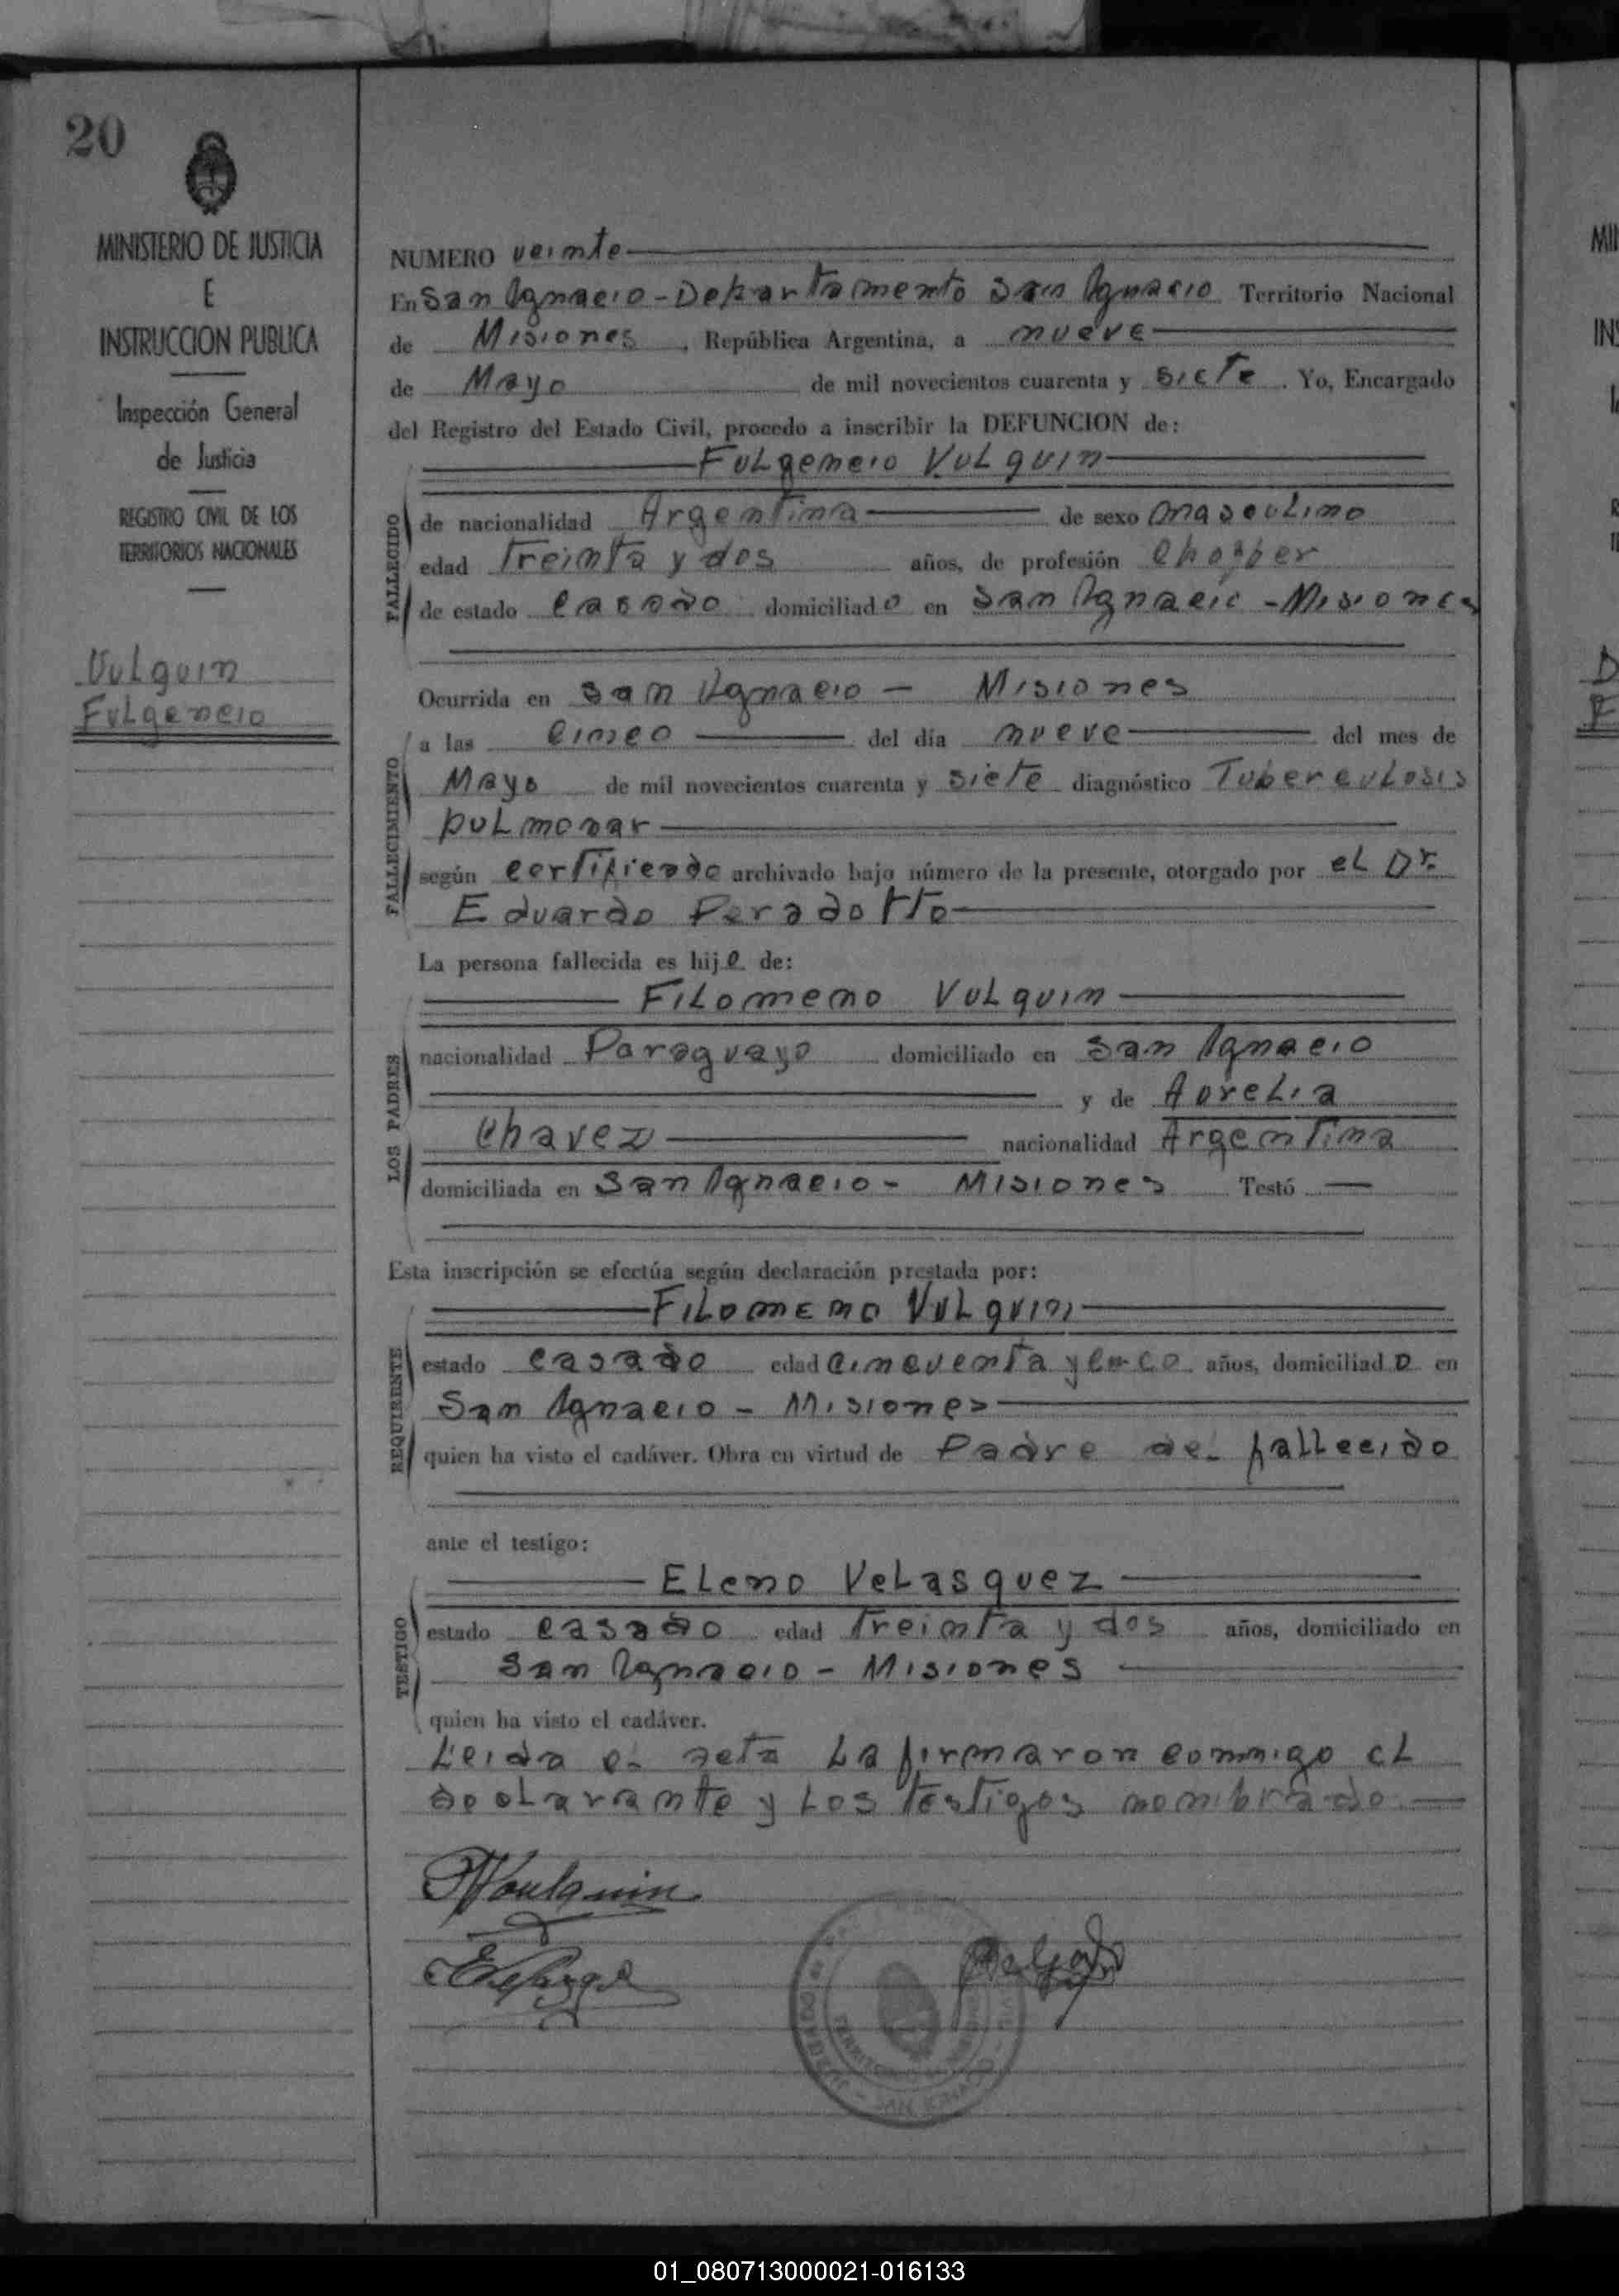 20
MINISTERIO DE JUSTICIA
E
INSTRUCCION PUBLICA
Inspección General
de Justicia
REGISTRO CIVIL DE LOS
TERRITORIOS NACIONALES
Vulquin
Fulgencio
NUMERO veinte
En San Ignacio - Departamento San Ignacio Territorio Nacional
de Misiones, República Argentina, a nueve
de Mayo de mil novecientos cuarenta y siete. Yo, Encargado
del Registro del Estado Civil, procedo a inscribir la DEFUNCION de:
Fulgencio Vulquin
FALLECIDO
de nacionalidad Argentina de sexo masculino
edad treinta y dos años, de profesión Choffer
de estado casado domiciliado en San Ignacio - Misiones
Ocurrida en San Ignacio - Misiones
FALLECIMIENTO
a las cinco del día nueve del mes de
Mayo de mil novecientos cuarenta y siete diagnóstico Tuberculosis
pulmonar
según certificado archivado bajo número de la presente, otorgado por el Dr.
Eduardo Peradotto
La persona fallecida es hijo de:
LOS PADRES
Filomeno Vulquin
nacionalidad Paraguayo domiciliado en San Ignacio
y de Aurelia
Chavez nacionalidad Argentina
domiciliada en San Ignacio - Misiones Testó
Esta inscripción se efectúa según declaración prestada por:
REQUIRENTE
Filomeno Vulquin
estado casado edad cincuenta y cinco años, domiciliado en
San Ignacio - Misiones
quien ha visto el cadáver. Obra en virtud de Padre del fallecido
ante el testigo:
TESTIGO
Eleno Velasquez
estado casado edad treinta y dos años, domiciliado en
San Ignacio - Misiones
quien ha visto el cadáver.
Leida el acta la firmaron conmigo el
declarante y los testigos nombrado
F Voulquin
SAN IGNACIO
MI
IN
01_080713000021-016133